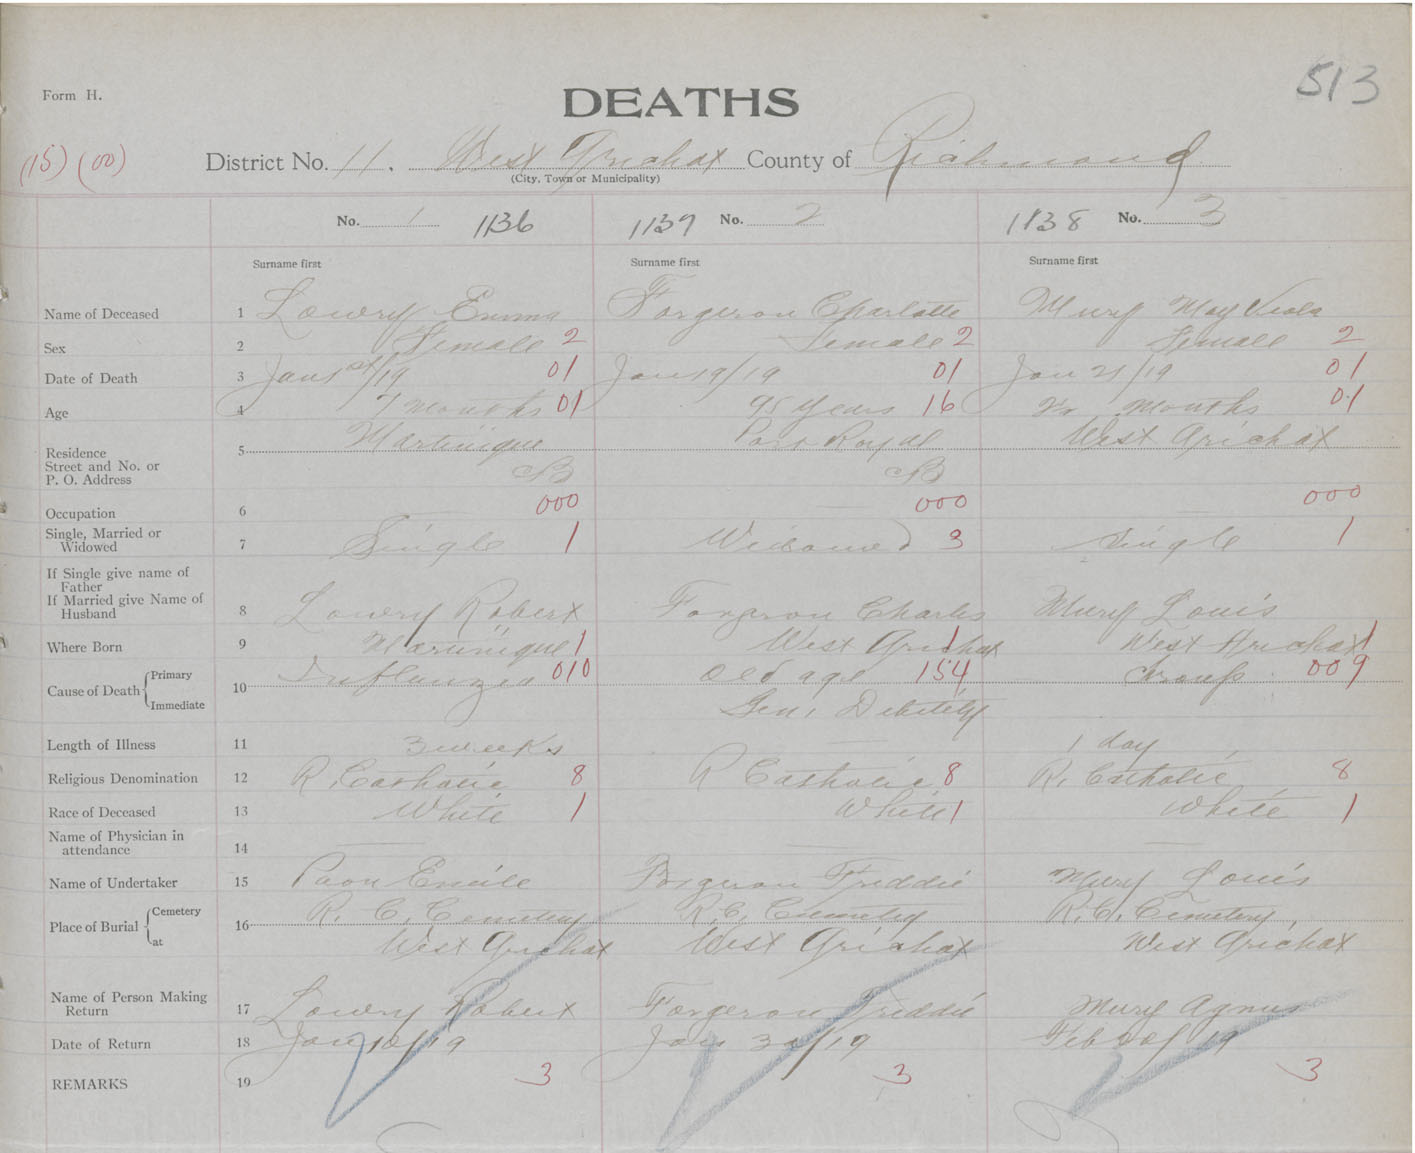 513
Form H.
DEATHS
(15) (00) District No. 11. West Arichat County of Richmond
(City, Town or Municipality)
No. 1 1136 1137 No. 2 1138 No. 3
Surname first Surname first Surname first
Name of Deceased 1 Lowry Emma Forgeron Charlotte Mury May Viola
Sex 2 Female 2 Female 2 Female 2
Date of Death 3 Jan 1st/19 01 Jan 19/19 01 Jan 21/19 01
Age 4 7 months 01 95 years 16 months 01
Residence 5 Martinique Port Royal West Arichat
Street and No. or
P. O. Address CB CB
Occupation 6 000 000 000
Single, Married or
Widowed 7 Single 1 Widowed 3 Single 1
If Single give name of
Father
If Married give Name of
Husband 8 Lowry Robert Forgeron Charles Mury Louis
Where Born 9 Martinique 1 West Arichat 1 West Arichat 1
Cause of Death Primary 10 Influenza 010 Old age 154 Croup 009
Immediate Gen. Debility
Length of Illness 11 3 weeks 1 day
Religious Denomination 12 R. Catholic 8 R Catholic 8 R. Catholic 8
Race of Deceased 13 White 1 White 1 White 1
Name of Physician in
attendance 14
Name of Undertaker 15 Paon Emile Forgeron Freddie Mury Louis
Place of Burial Cemetery 16 R. C. Cemetery R.C. Cemetery R.C. Cemetery
at West Arichat West Arichat West Arichat
Name of Person Making
Return 17 Lowry Robert Forgeron Freddie Mury Agnus
Date of Return 18 Jan 10/19 Jan 30/19 Feb 20/19
REMARKS 19 3 3 3